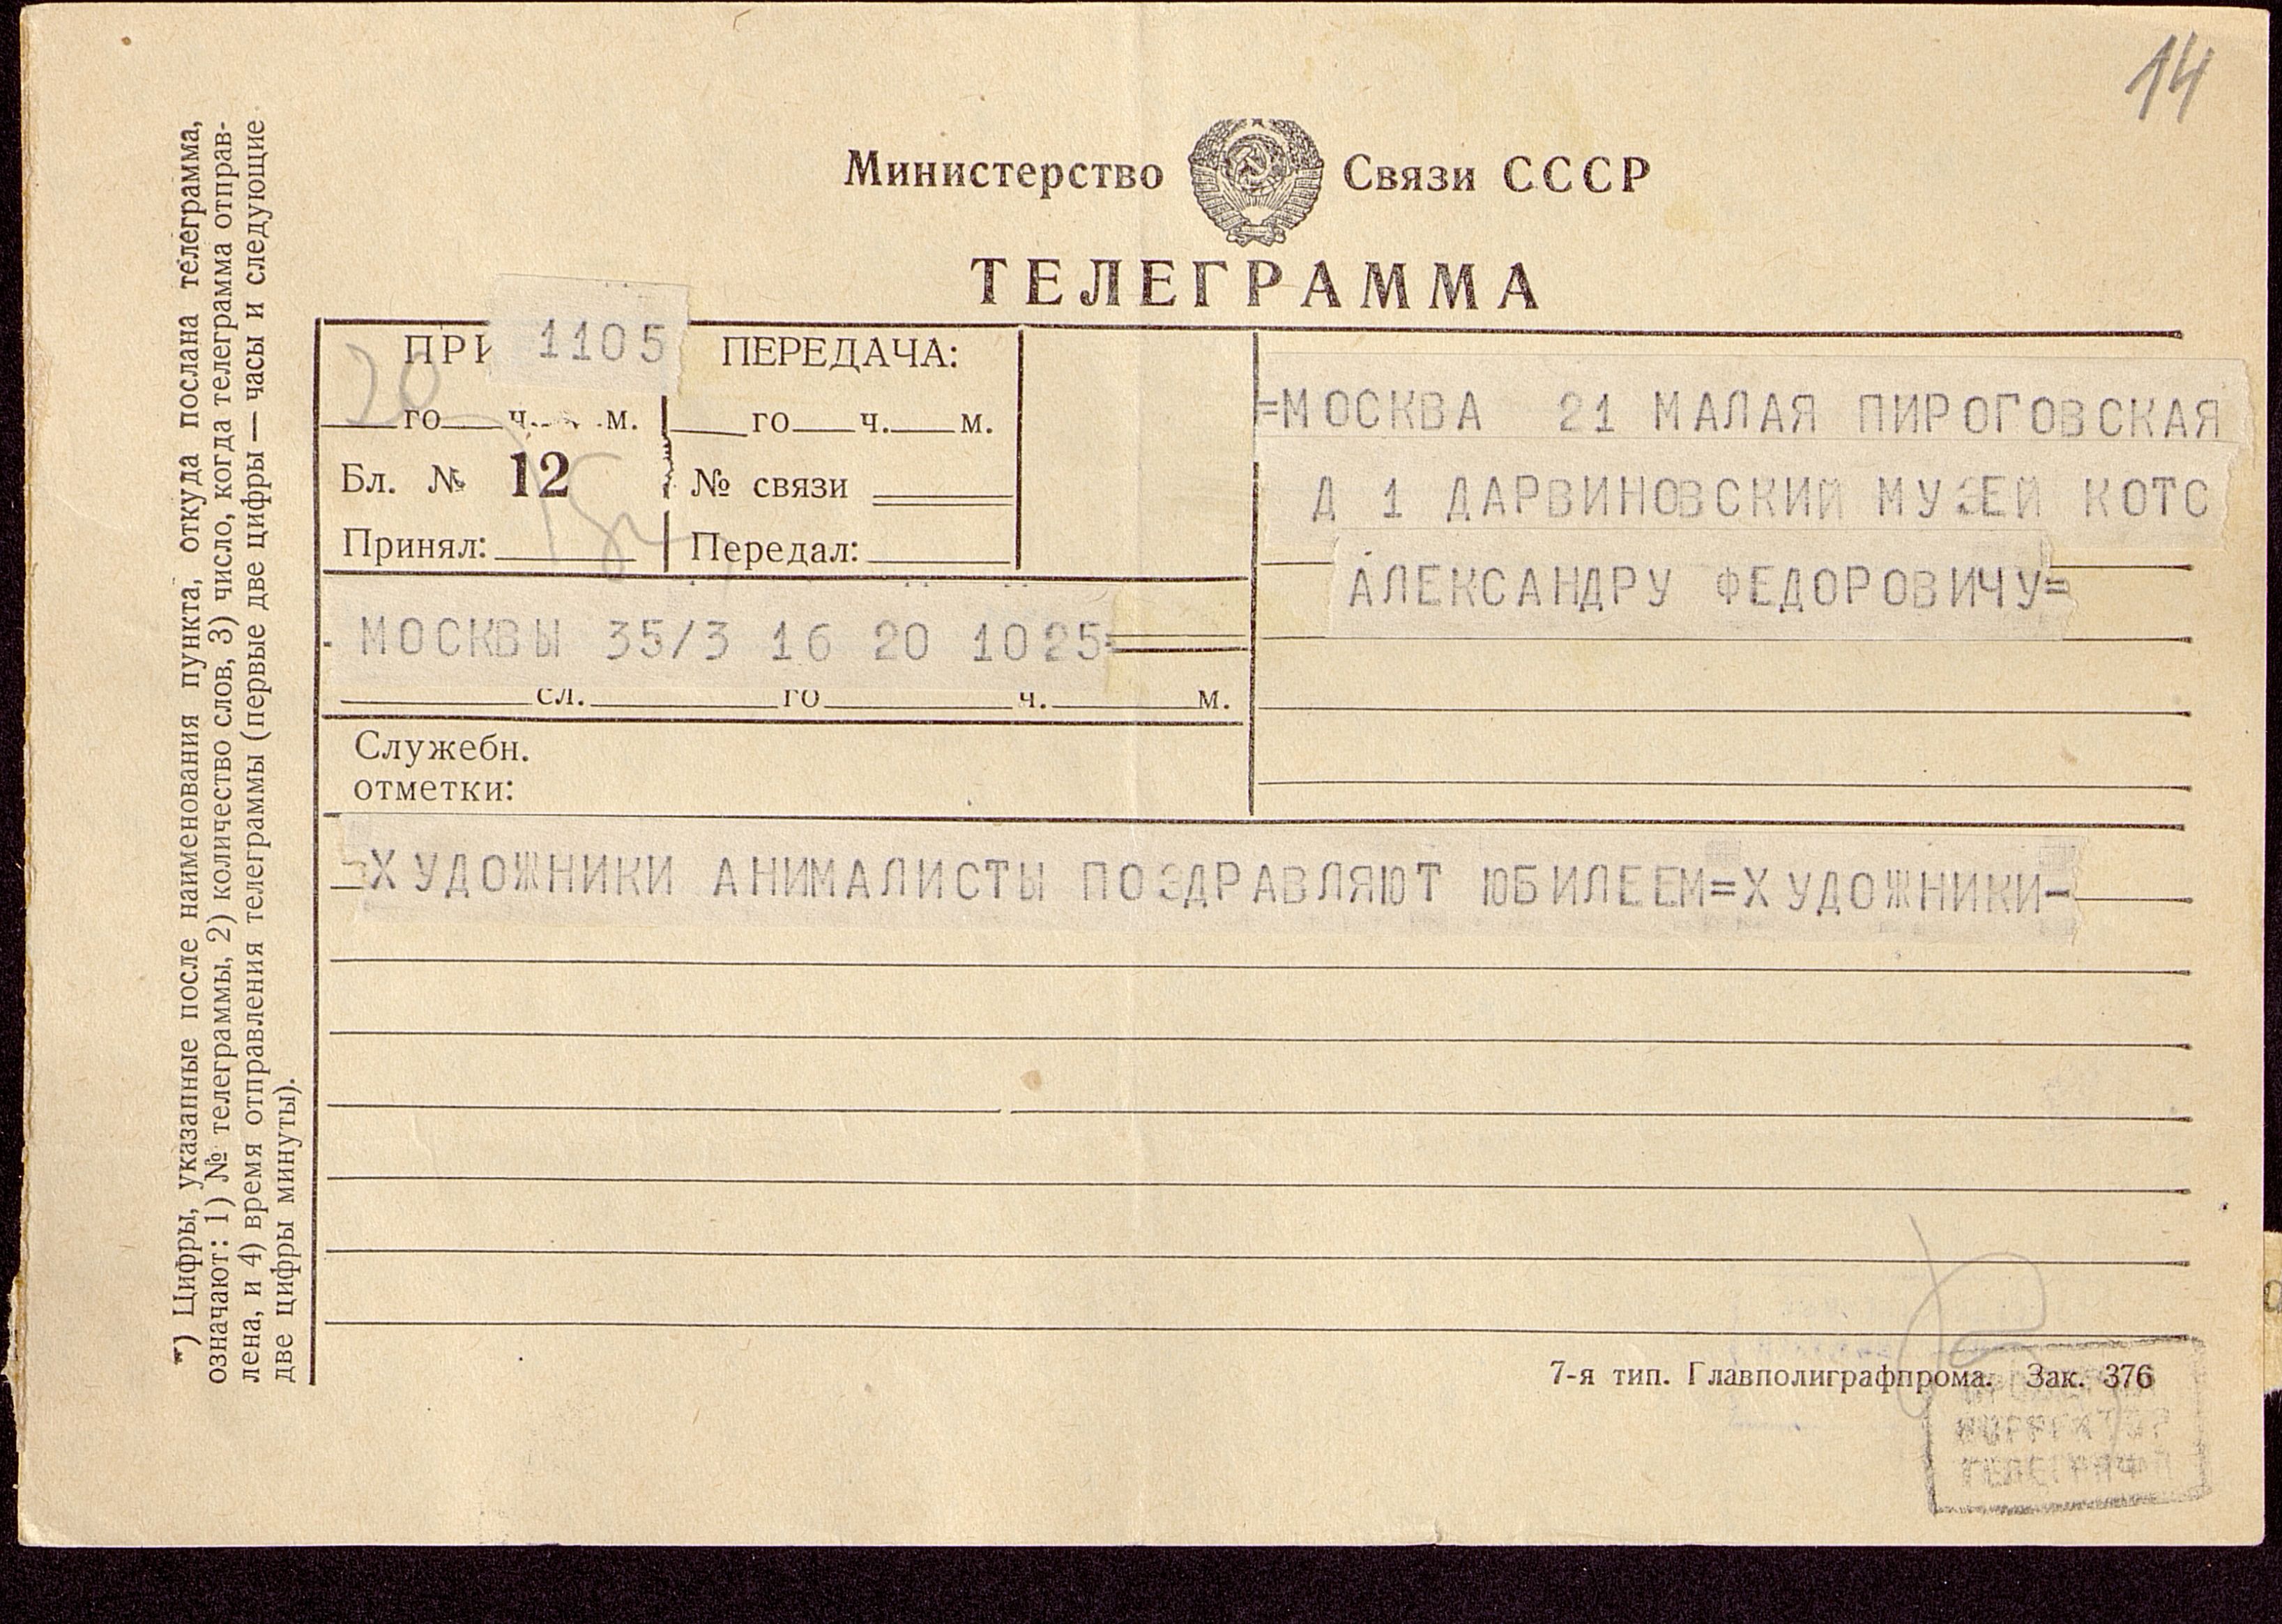 14
Министерство Связи СССР
ТЕЛЕГРАММА
1105 ПЕРЕДАЧА:
20 го ч. м. го ч. м.
Бл. № 12 № связи
Принял: Передал:
=МОСКВА 21 МАЛАЯ ПИРОГОВСКАЯ
Д 1 ДАРВИНОВСКИЙ МУЗЕЙ КОТС
АЛЕКСАНДРУ ФЕДОРОВИЧУ=
МОСКВЫ 35/3 16 20 1025=
сл. го ч. м.
Служебн.
отметки:
=ХУДОЖНИКИ АНИМАЛИСТЫ ПОЗДРАВЛЯЮТ ЮБИЛЕЕМ=ХУДОЖНИКИ-
*) Цифры, указанные после наименования пункта, откуда послана телеграмма,
означают: 1) № телеграммы, 2) количество слов, 3) число, когда телеграмма отправ-
лена, и 4) время отправления телеграммы (первые две цифры — часы и следующие
две цифры минуты).
7-я тип. Главполиграфпрома. Зак. 376
КОРРЕКТОР
ТЕЛЕГРАФ